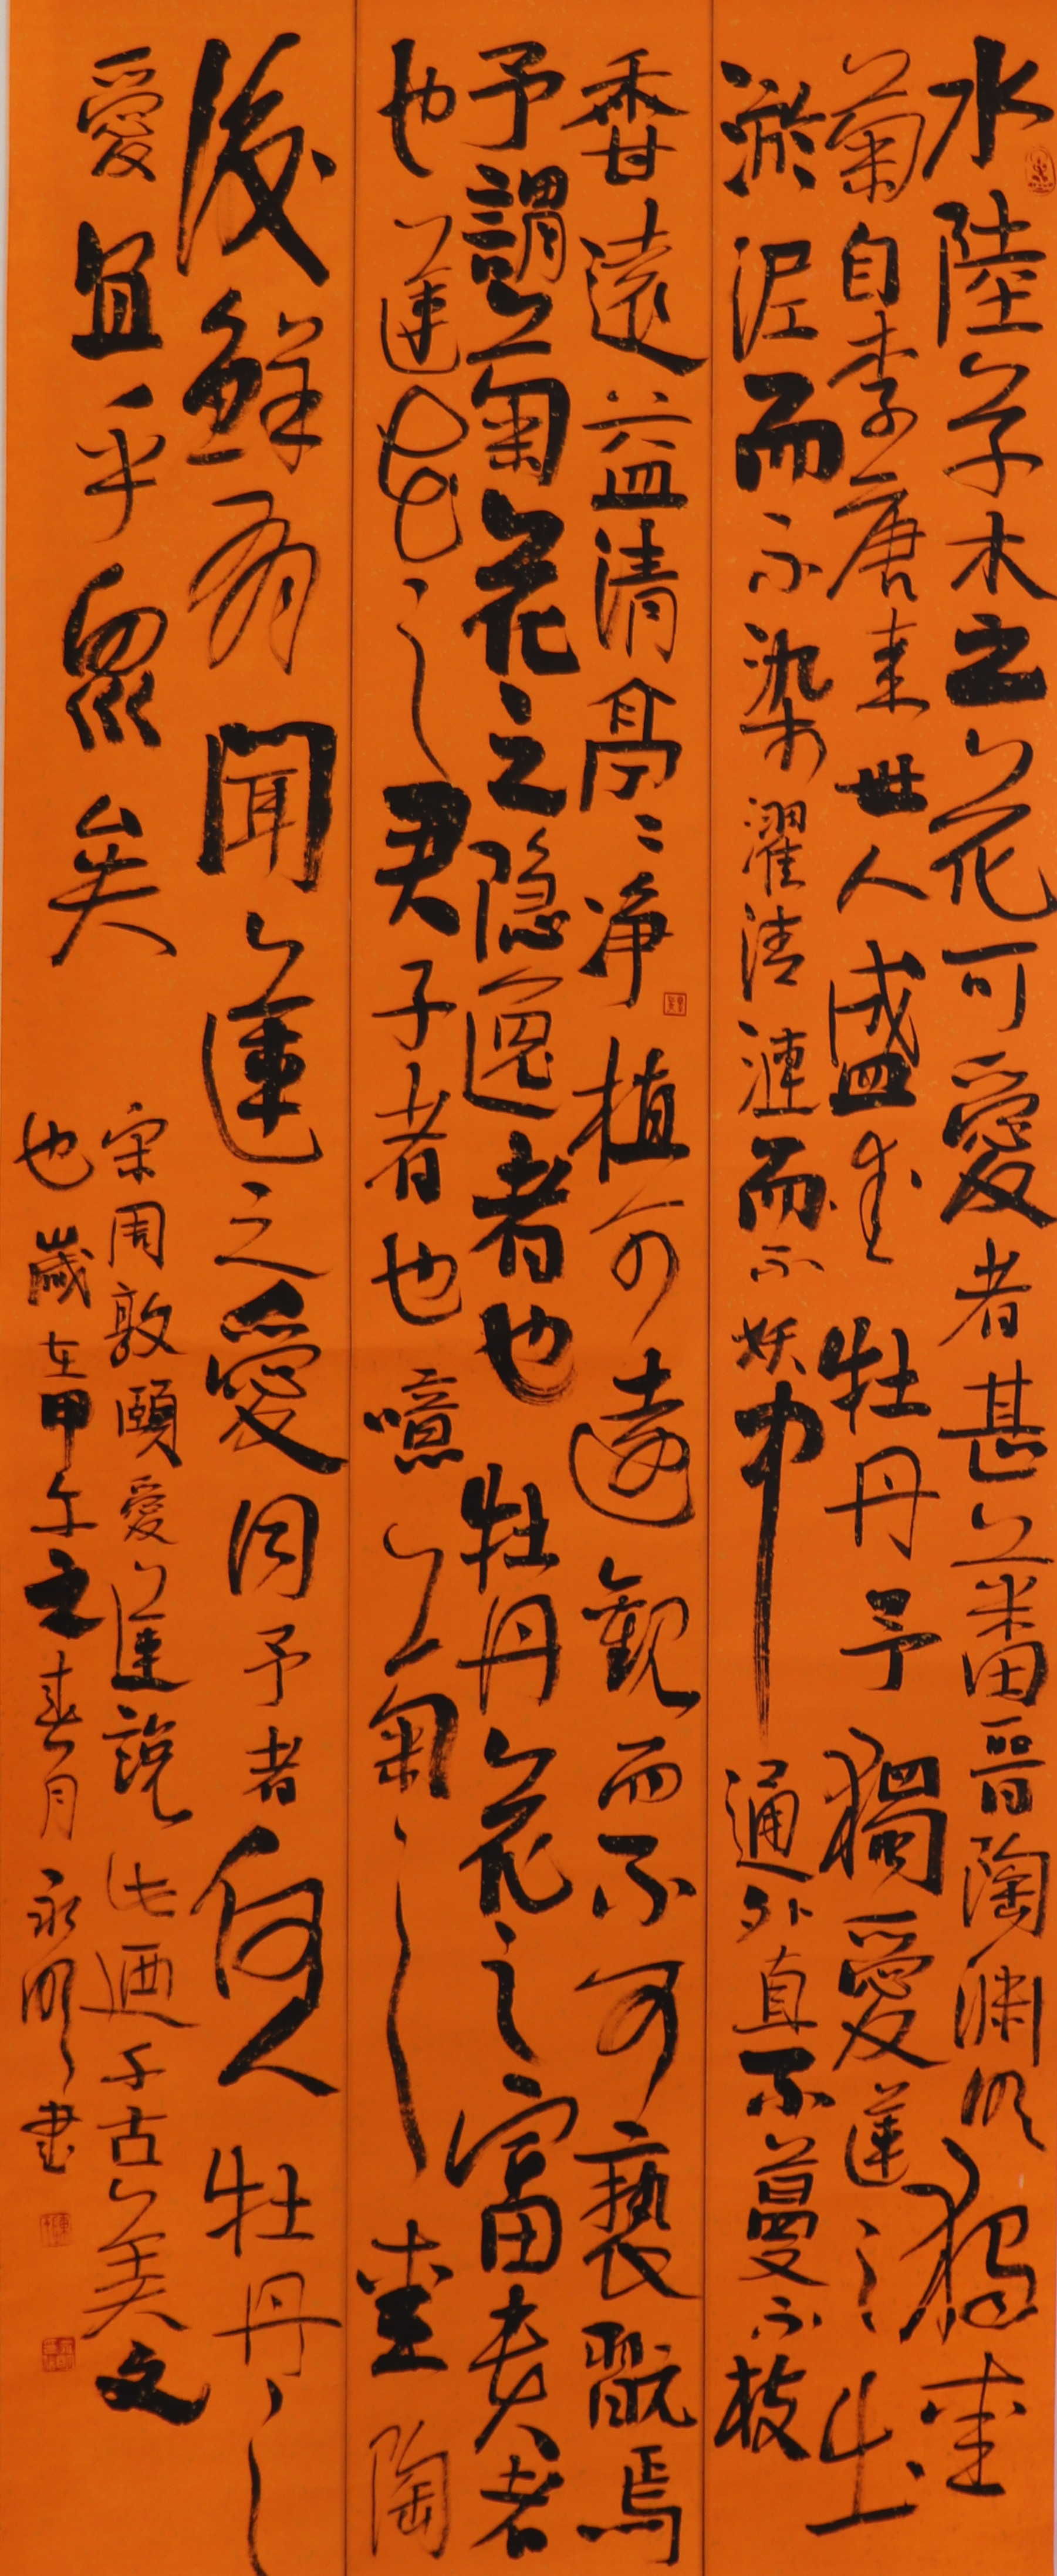 水陸草木之花可愛者甚蕃晉陶淵明獨愛
菊自李唐來世人盛愛牡丹予獨愛蓮之出
淤泥而不染濯清漣而不妖中通外直不蔓不枝
香遠益清亭々淨植可遠觀而不可褻翫焉
予謂菊花之隐逸者也牡丹花之富貴者
也蓮花之君子者也噫菊之愛陶
後鮮有聞蓮之愛同予者何人牡丹之
愛宜乎眾矣
宋周敦頤愛蓮說此迺千古美文
也歲在甲午之春月永明書